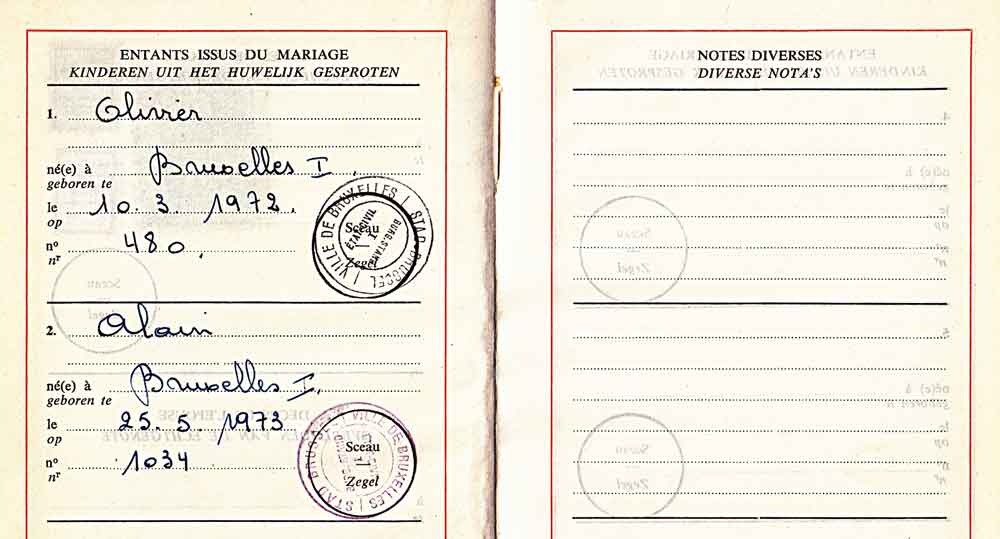 ENTANTS ISSUS DU MARIAGE
KINDEREN UIT HET HUWELIJK GESPROTEN
1. Olivier
né(e) à Bruxelles I.
geboren te
le 10. 3. 1972.
op
n° 480.
nr
VILLE DE BRUXELLES | STAD BRUSSEL
ETAT CIVIL
I
BURG. STAND
Sceau
Zegel
2. Alain
né(e) à Bruxelles I.
geboren te
le 25. 5. 1973
op
n° 1034
nr
VILLE DE BRUXELLES | STAD BRUSSEL
Sceau
Zegel
NOTES DIVERSES
DIVERSE NOTA'S